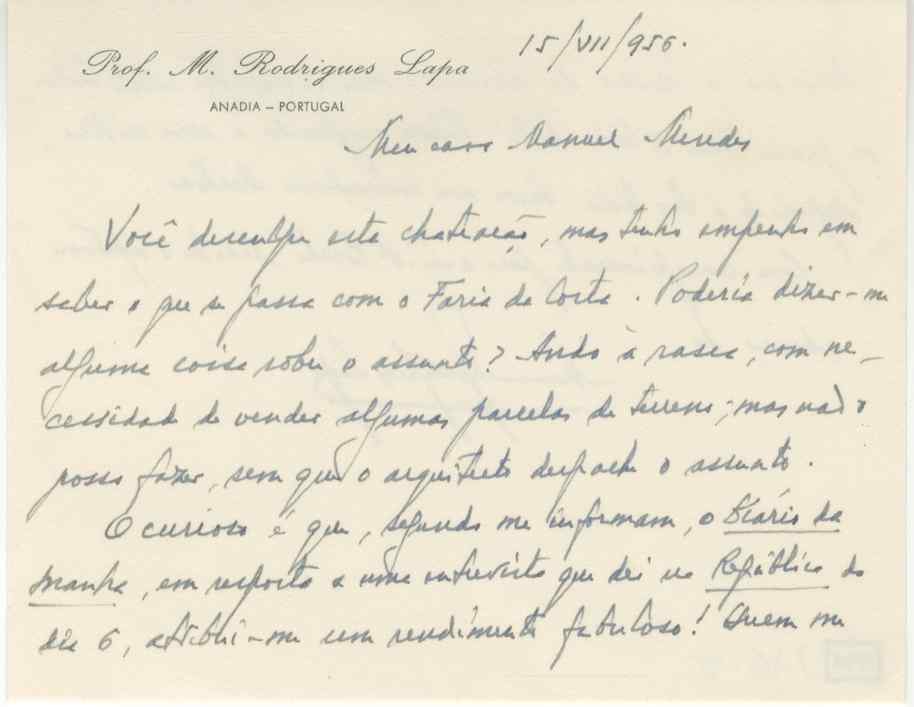 15/VII/956.
Prof. M. Rodrigues Lapa
ANADIA – PORTUGAL
Meu caro Manuel Mendes
Você desculpe esta chateação, mas tenho empenho em
saber o que se passa com o Faria da Costa. Poderia dizer-me
alguma coisa sobre o assunto? Ando à rasca, com ne-
cessidade de vender algumas parcelas de terreno; mas não o
posso fazer, sem que o arquitecto despache o assunto.
O curioso é que, segundo me informam, o Diário da
Manhã, em resposta a uma entrevista que dei na República do
dia 6, atribui-me um rendimento fabuloso! Quem me